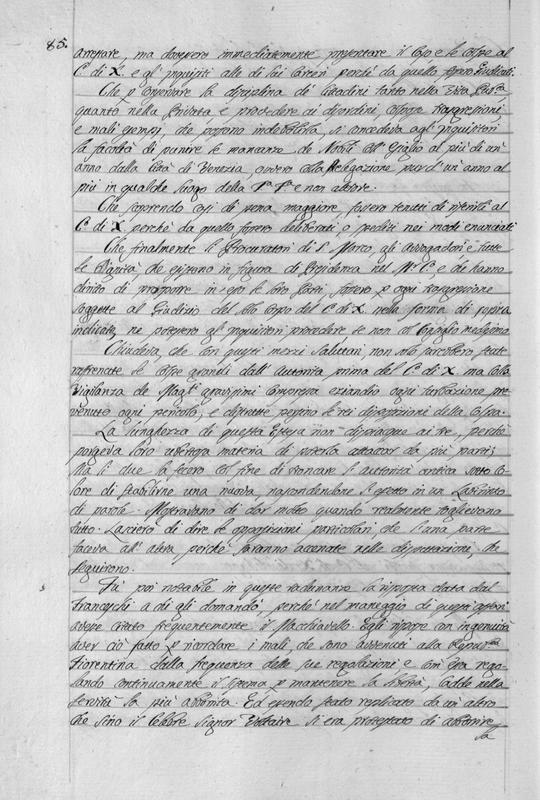 85.
arrestare, ma dovessero immediatemente presentare il Caso e le Carte al
C. di X. e gl' inquisiti alle di lui Carceri perchè da quello fossero Giudicati.
Che p conservare la disciplina de' Cittadini tanto nella Vita Pub.ca
quanto nella Privata e provedere ai disordini, colpose trasgressioni,
e mali esempj, che possono indebolirla, si concedeva agl' Inquisitori
la facoltà di punire le mancanze de Nobili coll' Esiglio al più di un'
anno dalla Città di Venezia, ovvero colla Relegazione pur d' un' anno al
più in qualche luogo della T. F. e non altrove.
Che scoprendo casi di pena maggiore, fossero tenuti di riferirli al
C. di X. perchè da quello fossero deliberati, o spediti nei modi enunciati
Che finalmente li Procuratori di S. Marco, gli Avvogadori e tutte
le Dignità, che entrano in figura di Presidenza nel M. C. e che hanno
diritto di proporre in esso le loro Parti, fossero p ogni trasgressione
soggette al Giudizio del solo Corpo del C. di X. nella forma di sopra
indicata, ne potessero gl' Inquisitori procedere se non al Consiglio medesimo
Chiudeva, che con questi mezzi salutari, non solo sarebbero state
raffrenate le colpe grandi dall' Autorità prima del C. di X. ma colla
Vigilanza de Mag.ti gravissimi compressa eziandio ogni turbazione, pre-
venuto ogni pericolo, e distrutte persino le rei disposizioni della Colpa.
La lunghezza di questa Estesa non dispiacque ai tre, perchè
porgeva loro ubertosa materia di poterla attaccar da più parti;
Ma li due la fecero col fine di troncare l' autorità antica sotto co-
lore di stabilirne una nuova nascondendone l' effetto in un Labirinto
di parole. Mostravano di dar molto quando realmente toglievano
tutto. Lasciero di dire le opposizioni particolari, che l' una parte
faceva all' altra poiché saranno accennate nelle disputazioni, che
seguirono.
Fù poi notabile in queste radunanze la risposta data dal
Franceschi a chi gli domandò, perchè nel maneggio di questi affari
avesse citato frequentemente il Macchiavello. Egli rispose con ingenuità
aver ciò fatto p ricordare i mali, che sono avvenuti alla Repub.ca
Fiorentina dalla frequenza delle sue regolazioni e con' essa rego-
lando continuamente il sistema p mantenere la libertà, cadde nella
servitù la più abborrita. Ed essendo stato replicato da un' altro
che sino il celebre Signor Voltaire si era protestato di abborrire
la